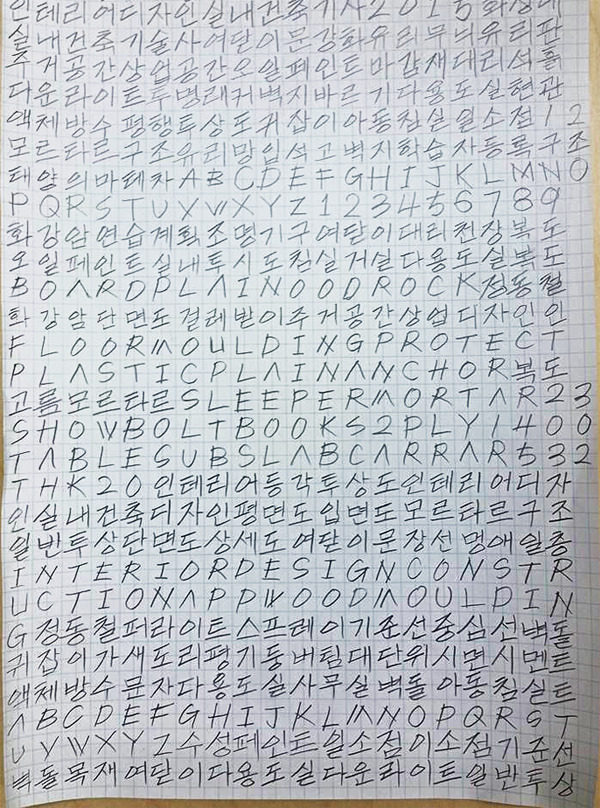 인테리어디자인실내건축기사2015화상대
실내건축기술사여닫이문강화유리무늬유리판
주거공간상업공간오일페인트마감재대리석홁
다운라이트투명래커벽지바르기다용도실현관
액체방수평행투상도귀잡이아동침실일소점12
모르타르구조유리망입석고벽지학습자등록구조
태양의마테차ABCDEFGHIJKLMNO
PQRSTUVWXYZ123456789
화강암연습계획조명기구여닫이대리천장복도
오일페인트실내투시도침실거실다용도실복도
BOARDPLAINOODROCK점동철
화강암단면도걸레받이주거공간상업디자인인
FLOORMOULDINGPROTECT
PLASTICPLAINANCHOR복도
고름모르타르SLEEPERMORTAR23
SHOWBOLTBOOKS2PLY1400
TABLESUBSLABCARRAR532
THK20인테리어등각투상도인테리어디자
인실내건축디자인평면도입면도모르타르구조
일반투상단면도상세도여닫이문장선멍애일층
INTERIORDESIGNCONSTR
UCTIONAPPWOODMOULDIN
G경동철퍼라이트스프레이기준선중심선벽돌
귀잡이가새도리평기둥버팀대단위시면시멘트
액체방수문자다용도실사무실벽돌아동침실트
ABCDEFGHIJKLMNOPQRST
UVWXYZ수성페인트일소점이소점기준선
벽돌목재여닫이다용도실다운라이트일반투상